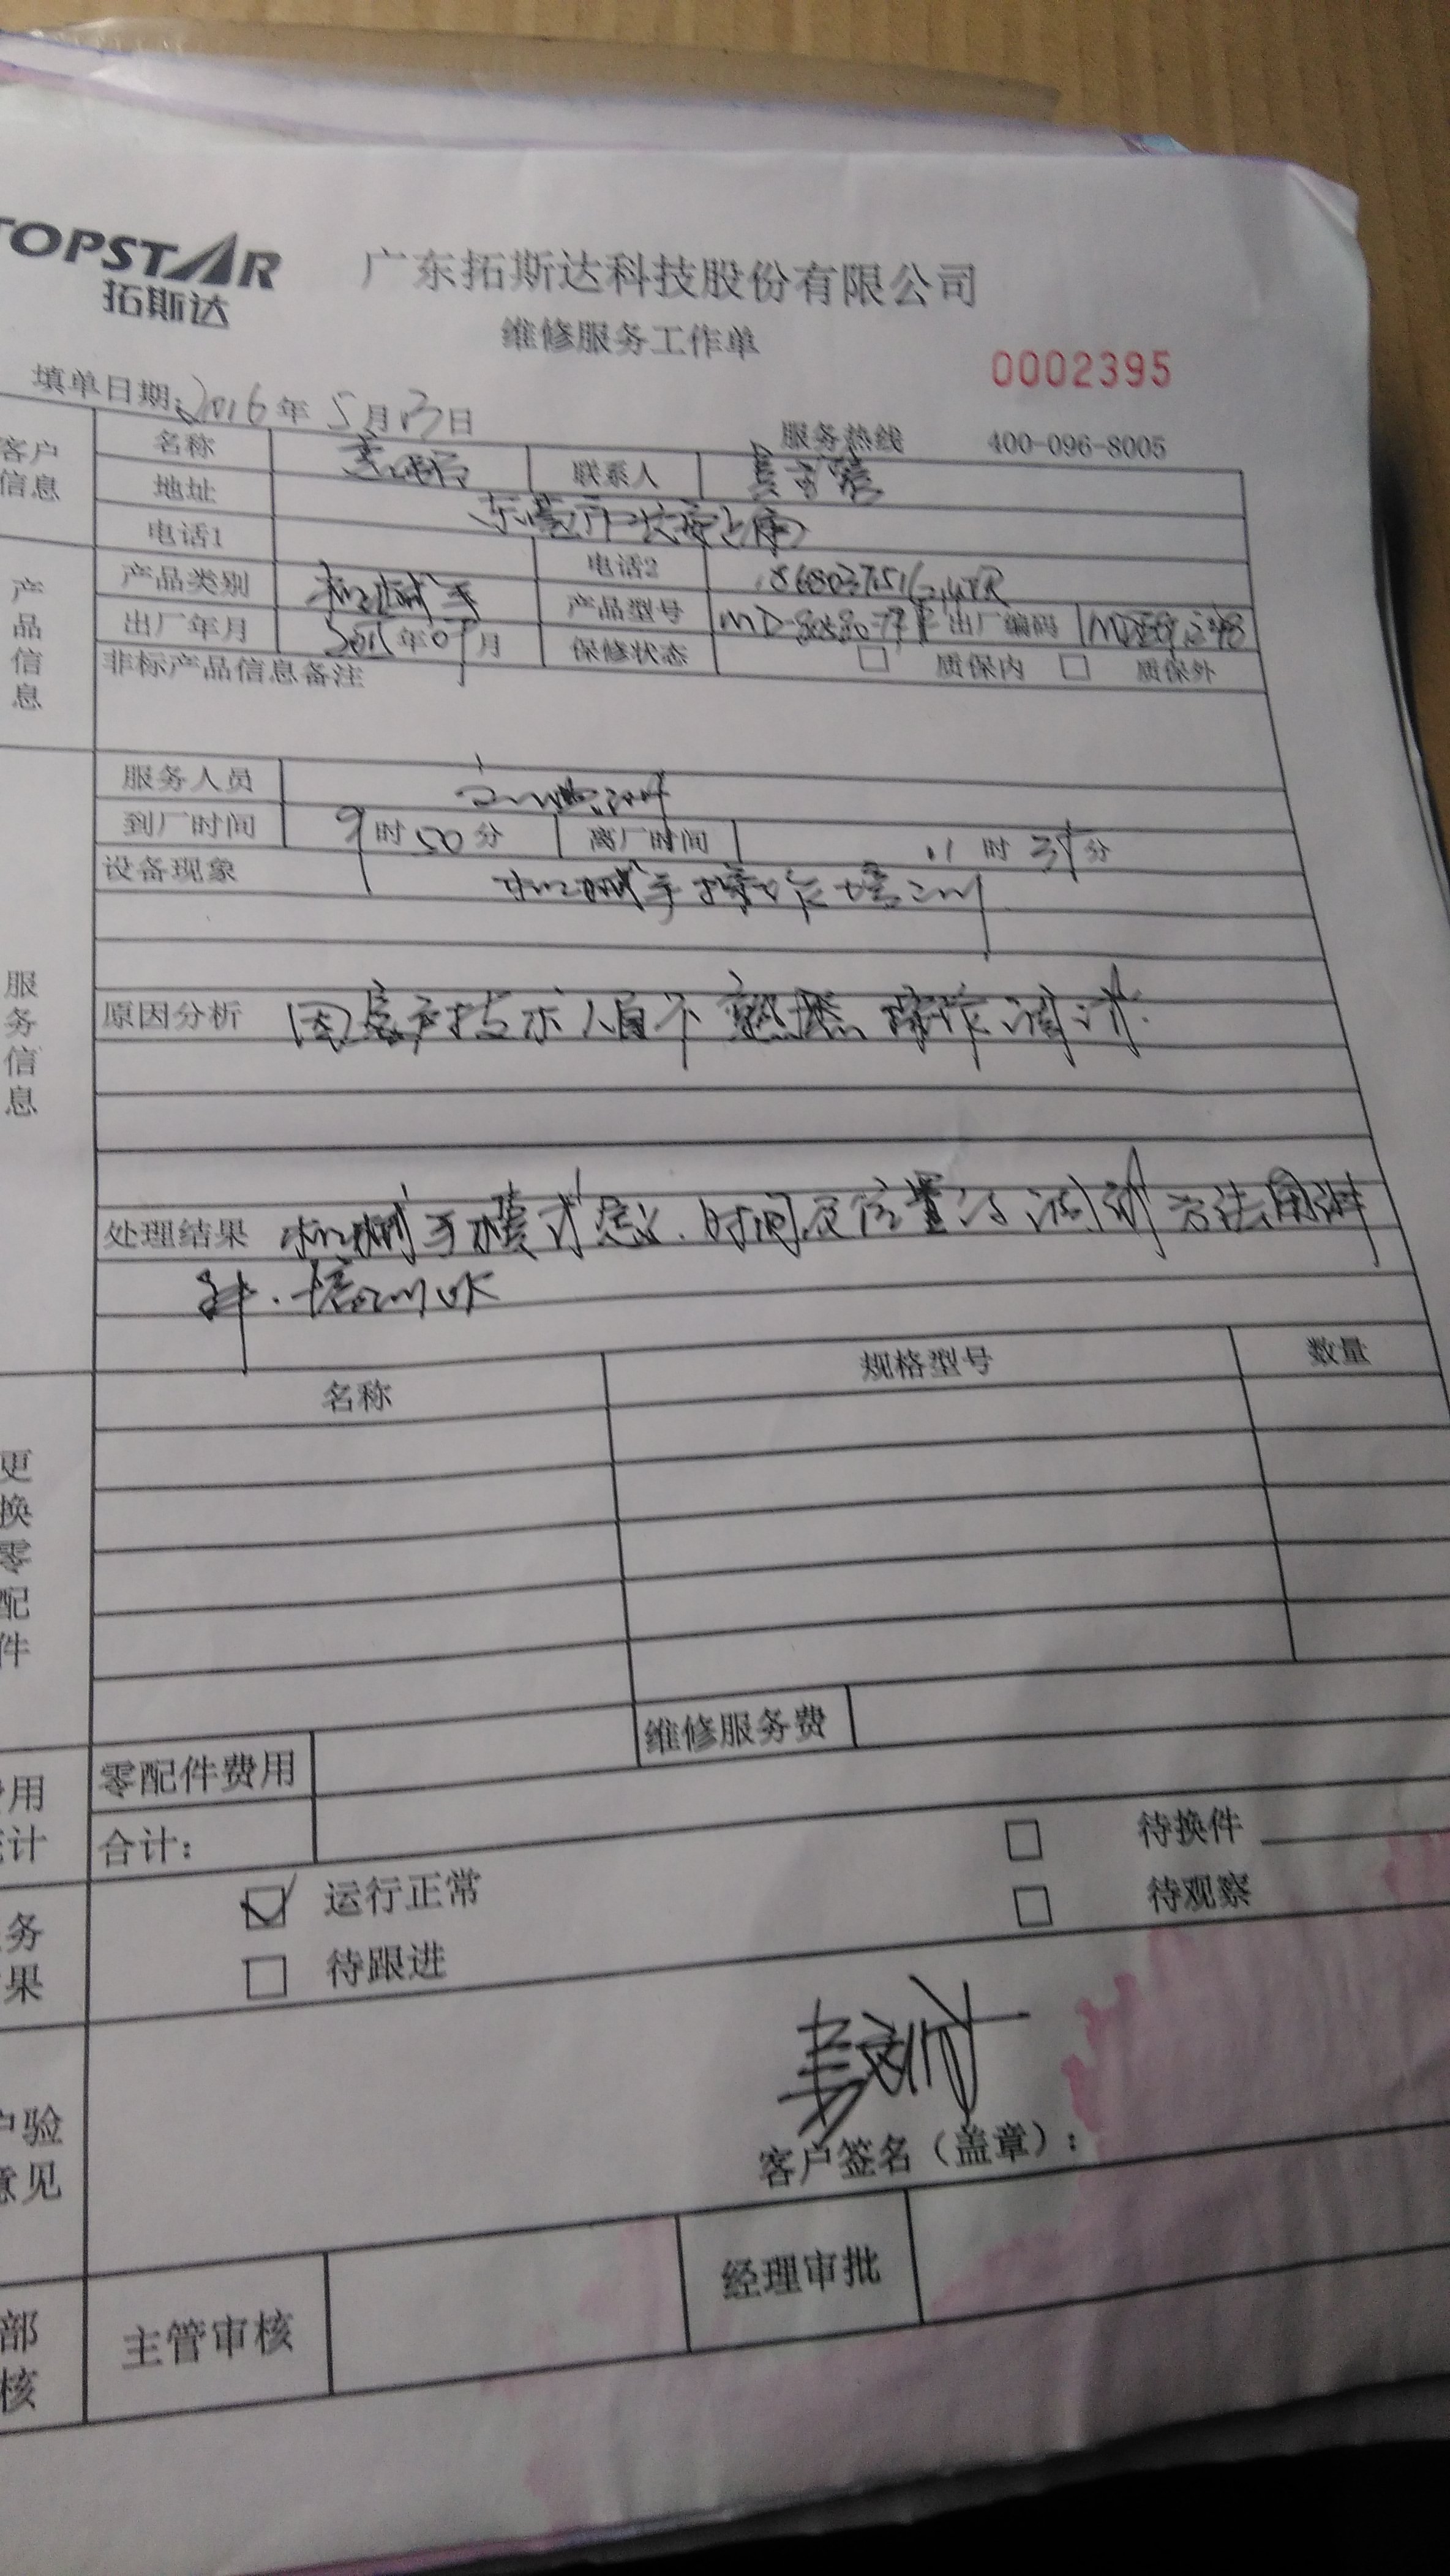 TOPSTAR
拓斯达
广东拓斯达科技股份有限公司
维修服务工作单
0002395
填单日期: 2016年5月13日
服务热线 400-096-8005
客户信息
名称 联系人
地址
电话1 电话2
产品信息
产品类别 机械手 产品型号 出厂编码
出厂年月 年 月 保修状态 □ 质保内 □ 质保外
非标产品信息备注
服务信息
服务人员
到厂时间 9时50分 离厂时间 11时35分
设备现象 机械手操作培训
原因分析 因客户技术人员不熟悉操作调试.
处理结果 机械手模式意义.时间及位置的调试方法用讲
解.培训OK
更换零配件
名称 规格型号 数量
零配件费用 维修服务费
用
计
合计:
务
果
☑ 运行正常 □ 待换件
□ 待跟进 □ 待观察
户验
意见
客户签名（盖章）:
部
核
主管审核 经理审批